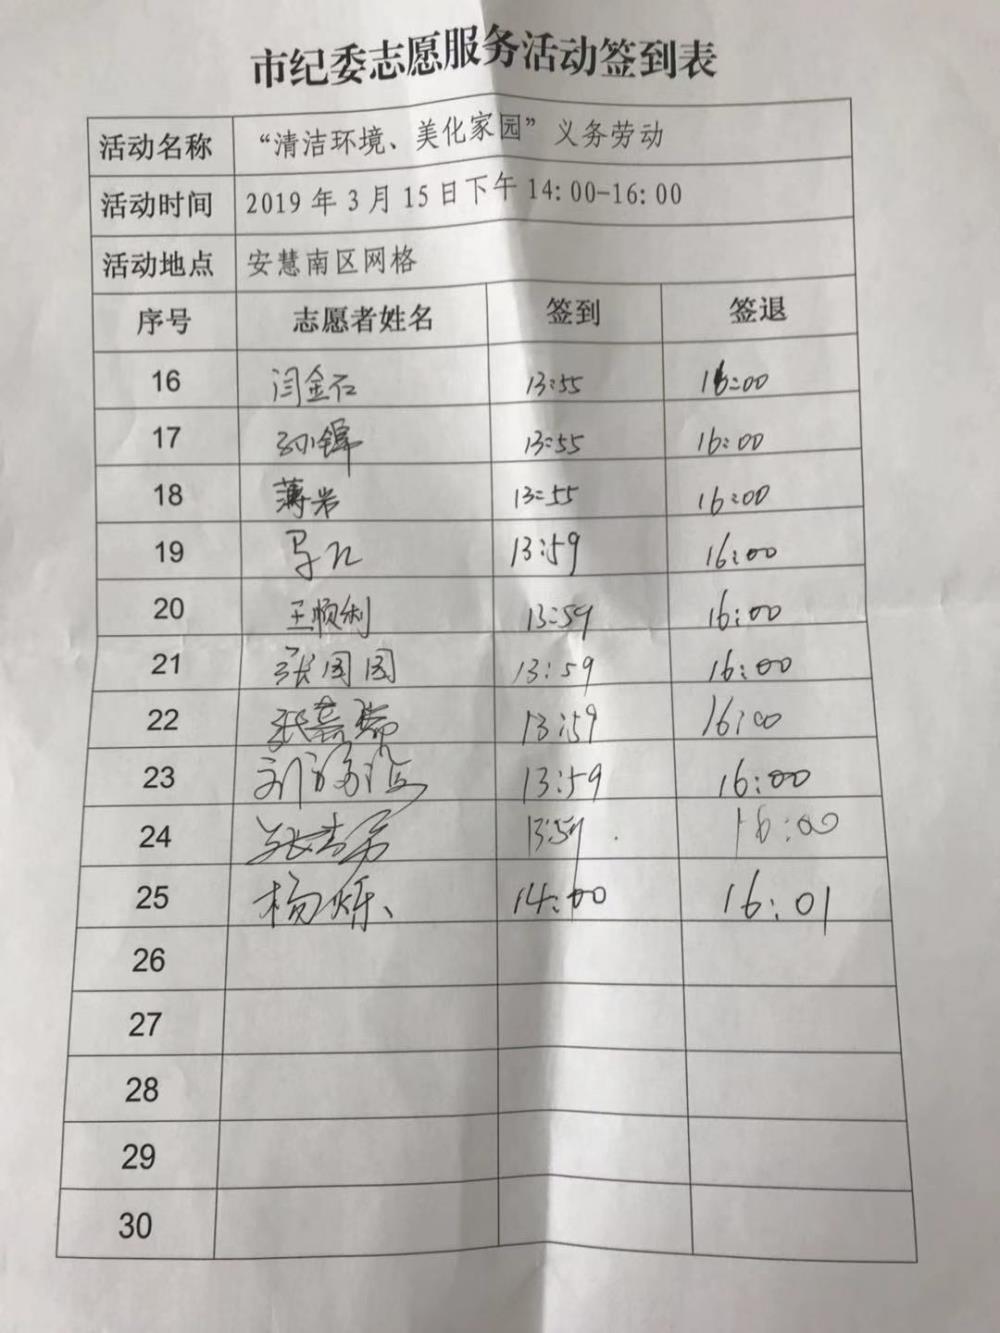 市纪委志愿服务活动签到表
活动名称 “清洁环境、美化家园”义务劳动
活动时间 2019年3月15日下午14:00-16:00
活动地点 安慧南区网格
序号 志愿者姓名 签到 签退
16 闫金石 13:55 16:00
17 13:55 16:00
18 薄岩 13:55 16:00
19 13:59 16:00
20 王顺利 13:59 16:00
21 张圆圆 13:59 16:00
22 13:59 16:00
23 13:59 16:00
24 13:59 16:00
25 杨烁 14:00 16:01
26
27
28
29
30